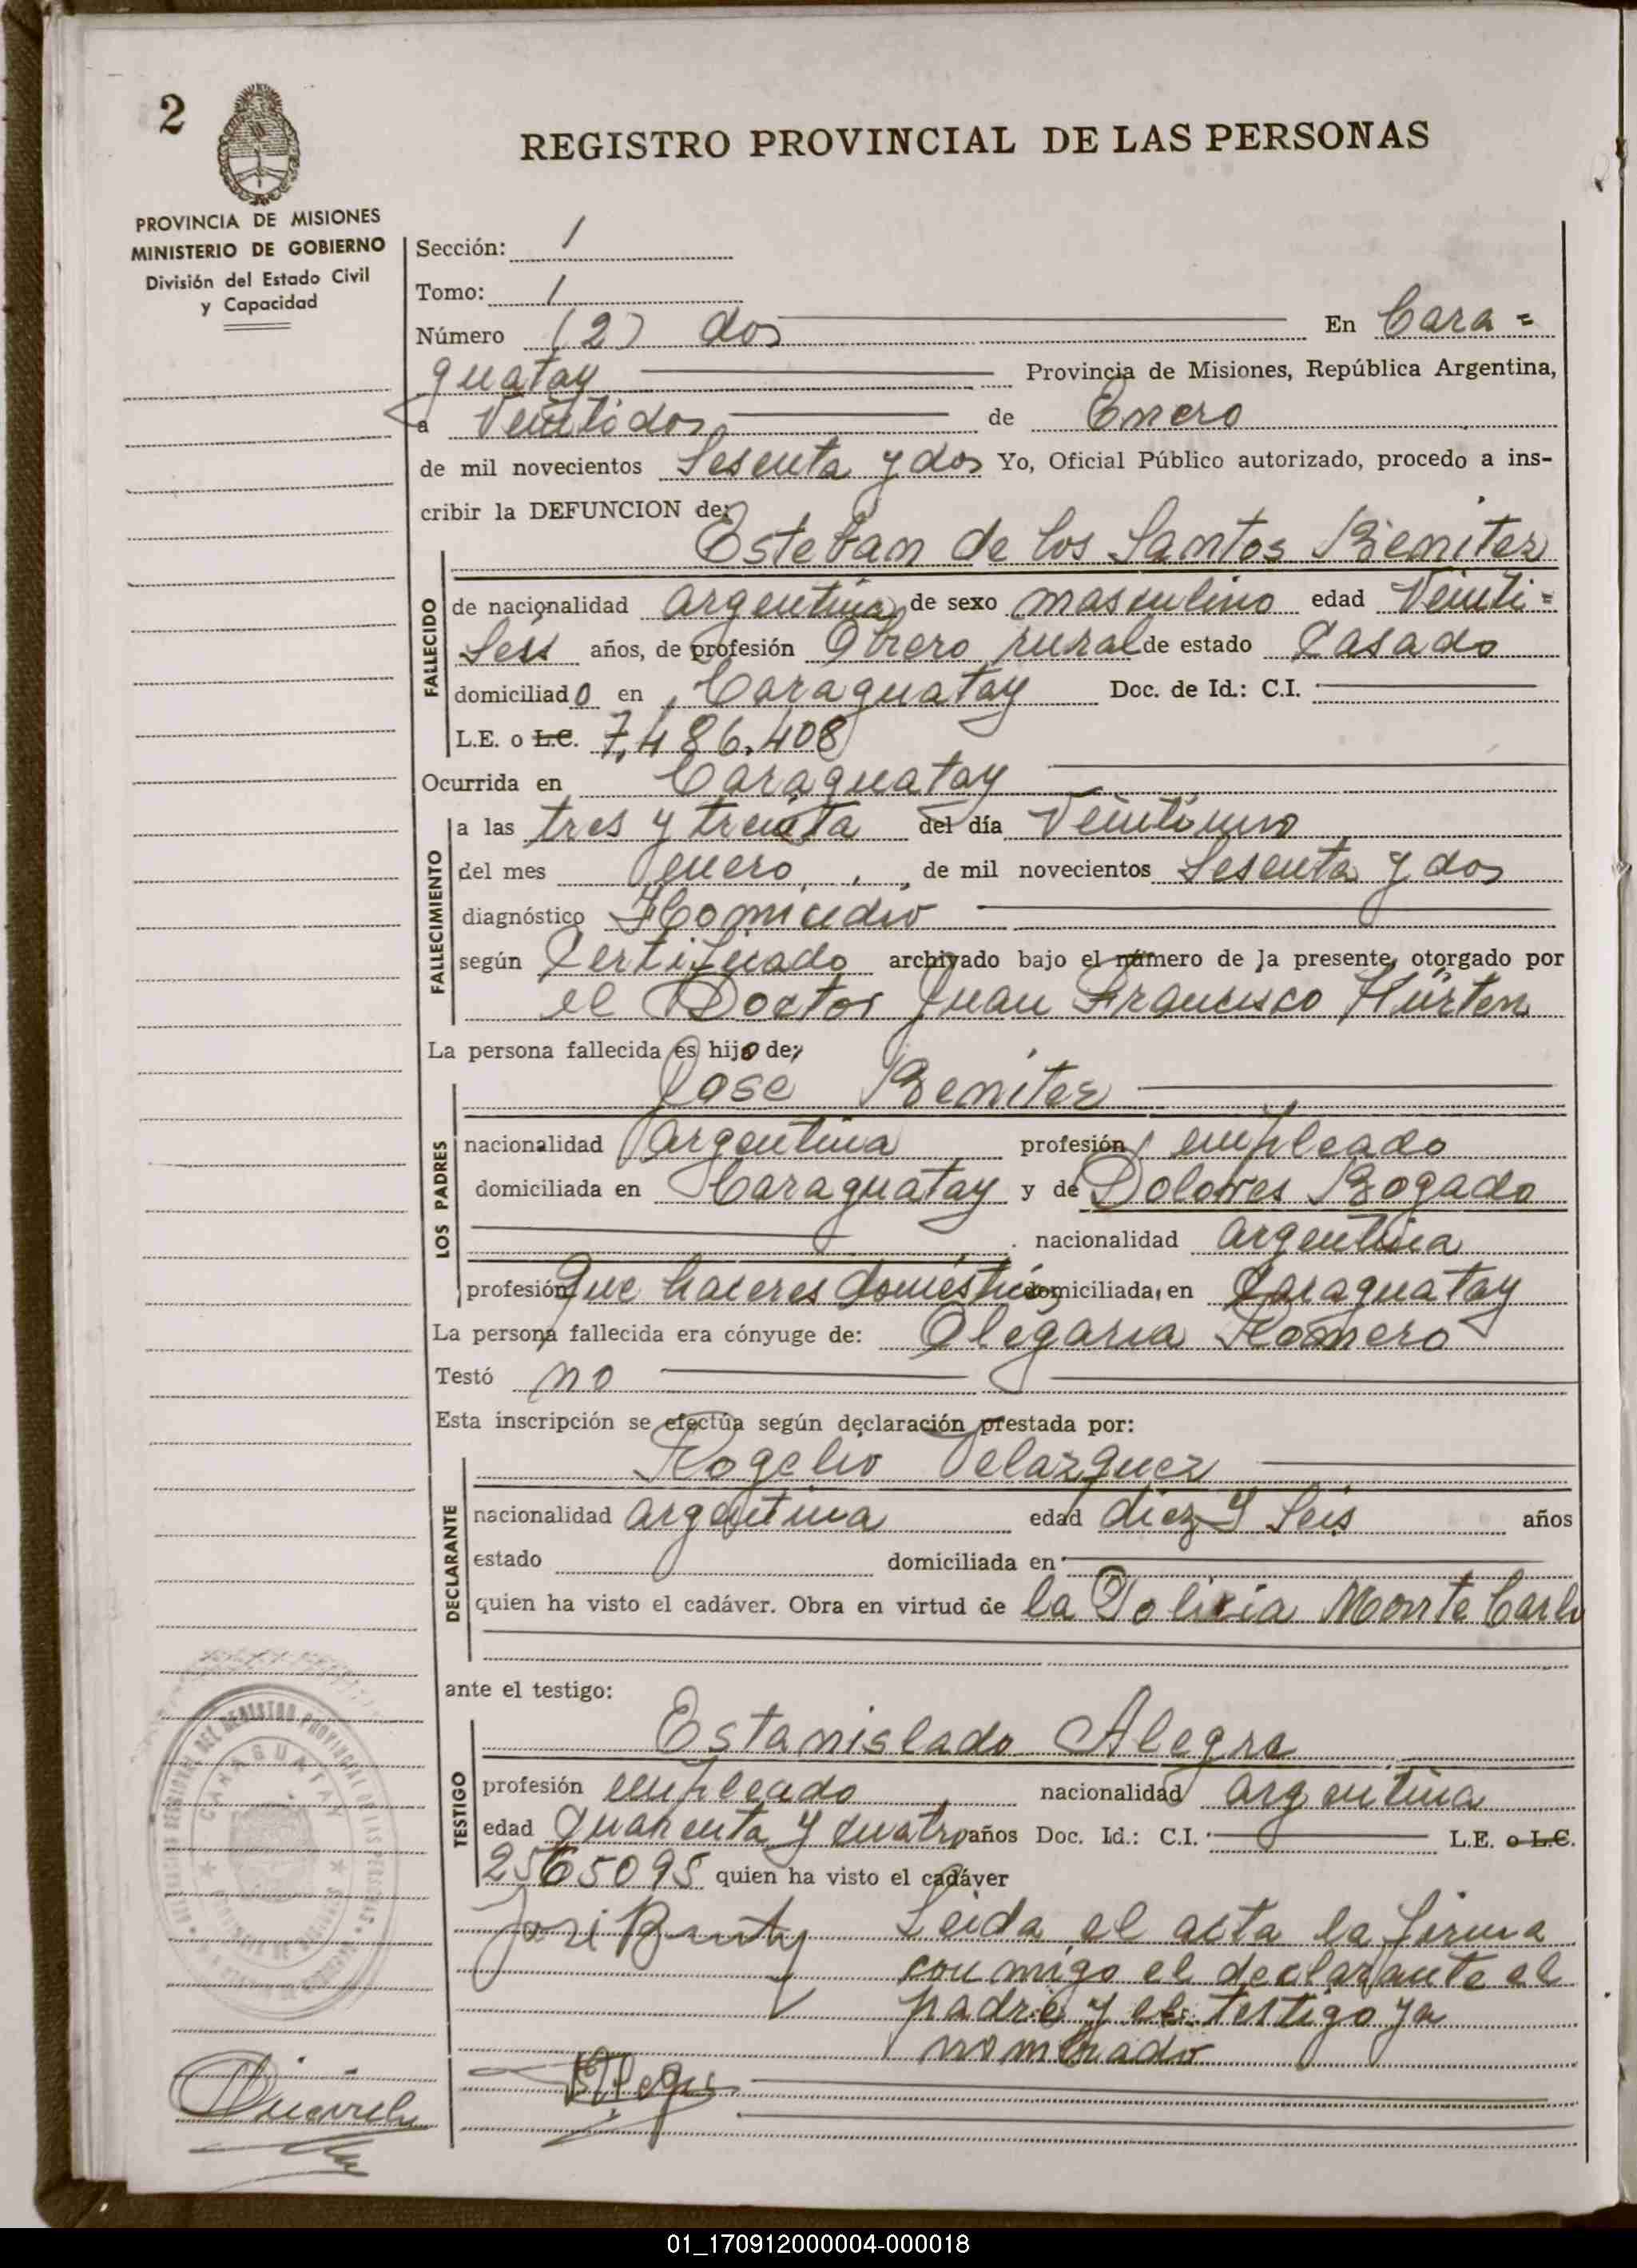 2
REGISTRO PROVINCIAL DE LAS PERSONAS
PROVINCIA DE MISIONES
MINISTERIO DE GOBIERNO
División del Estado Civil
y Capacidad
Sección: 1
Tomo: 1
Número (2) dos En Cara =
guatay Provincia de Misiones, República Argentina,
a Veintidos de Enero
de mil novecientos Sesenta y dos Yo, Oficial Público autorizado, procedo a ins-
cribir la DEFUNCION de:
Esteban de los Santos Benitez
FALLECIDO
de nacionalidad argentina de sexo masculino edad Veinti =
Seis años, de profesión Obrero rural de estado Casado
domiciliado en Caraguatay Doc. de Id.: C.I.
L.E. o L.C. 7.486.408
Ocurrida en Caraguatay
FALLECIMIENTO
a las tres y treinta del día Veintiuno
del mes enero de mil novecientos Sesenta y dos
diagnóstico Homicidio
según Certificado archivado bajo el número de la presente, otorgado por
el Doctor Juan Francisco Hürten
La persona fallecida es hijo de:
LOS PADRES
José Benitez
nacionalidad argentina profesión empleado
domiciliada en Caraguatay y de Dolores Bogado
nacionalidad argentina
profesión que haceres domésticos domiciliada, en Caraguatay
La persona fallecida era cónyuge de: Olegaria Romero
Testó no
Esta inscripción se efectúa según declaración prestada por:
DECLARANTE
Rogelio Velazquez
nacionalidad argentina edad diez y Seis años
estado domiciliada en
quien ha visto el cadáver. Obra en virtud de la Policia Monte Carlo
ante el testigo:
TESTIGO
Estanislado Alegre
profesión empleado nacionalidad argentina
edad Cuarenta y cuatro años Doc. Id.: C.I. L.E. o L.C.
2565095 quien ha visto el cadáver
Leida el acta la firma
conmigo el declarante el
padre y el testigo ya
nombrado
CARAGUATAY
01_170912000004-000018